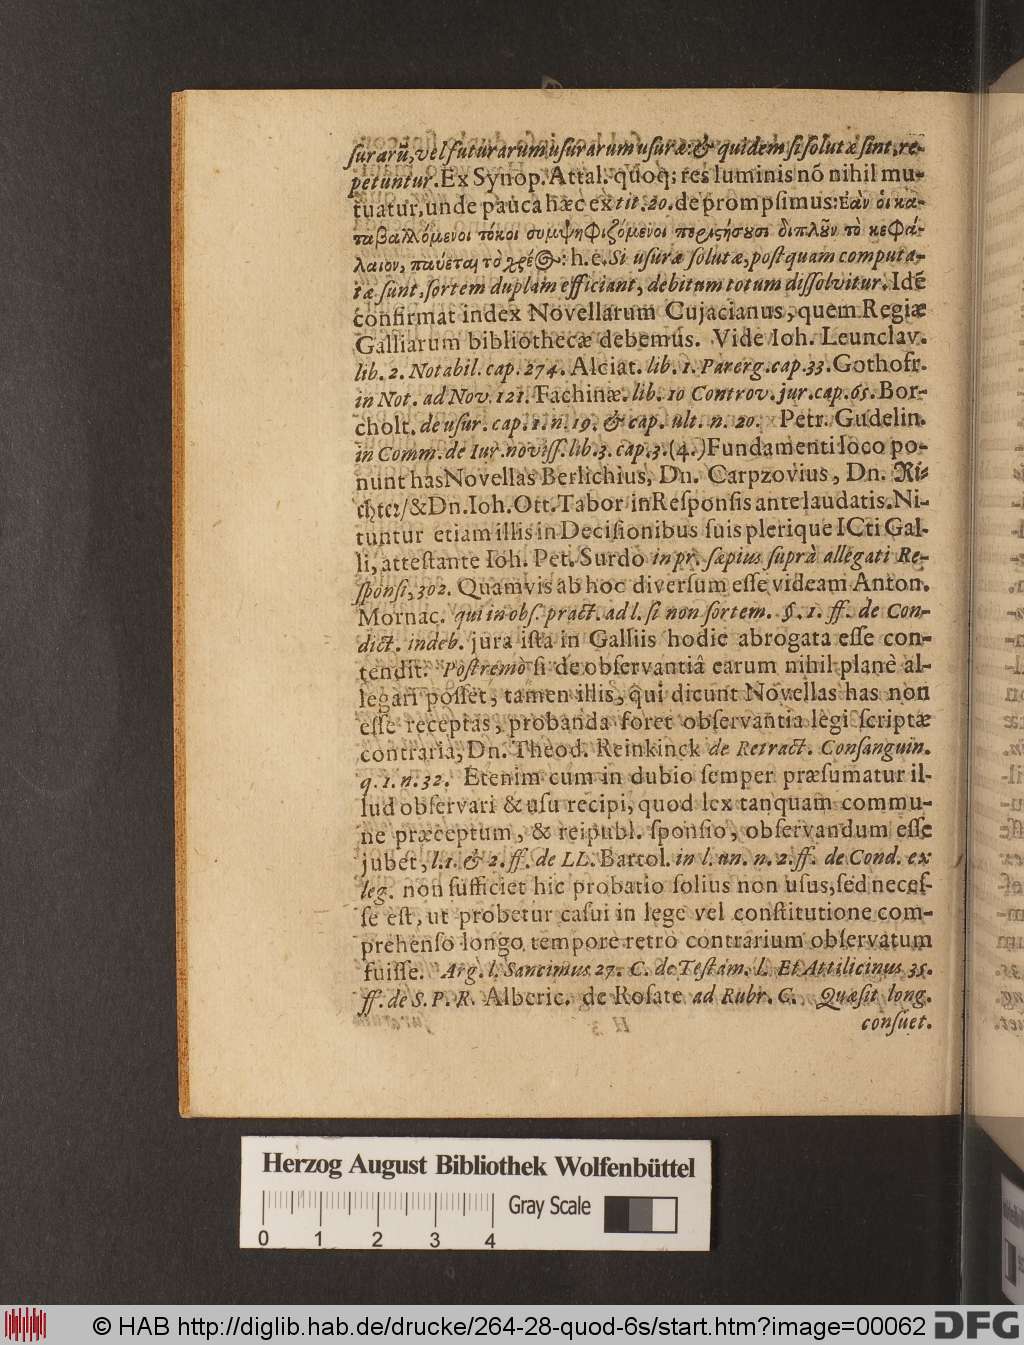 surarũ, vel futurarum usurarum usuræ: & quidem si solutæ sint, re-
petuntur. Ex Synop. Attal. quoq; res luminis nõ nihil mu-
tuatur, unde pauca hæc ex tit. 20. depromſimus: Ἐὰν οἱ κα-
ταβαλλόμενοι τόκοι συμψηφιζόμενοι περιςήσουσι διπλοῦν τὸ κεφά-
λαιον, παύεται τὸ χρέος: h. e. Si uſuræ ſolutæ, poſtquam computa-
tæ ſunt, ſortem duplam efficiant, debitum totum diſſolvitur. Idẽ
confirmat index Novellarum Cujacianus, quem Regiæ
Galliarum bibliothecæ debemus. Vide Ioh. Leunclav.
lib. 2. Notabil. cap. 274. Alciat. lib. 1. Parerg. cap. 33. Gothofr.
in Not. ad Nov. 121. Fachinæ. lib. 10 Controv. jur. cap. 65. Bor-
cholt. de uſur. cap. 1. n. 19. & cap. ult. n. 20. Petr. Gudelin.
in Comm. de Iur. noviſſ. lib. 3. cap. 3. (4.) Fundamenti loco po-
nunt has Novellas Berlichius, Dn. Carpzovius, Dn. Ri-
chter/ & Dn. Ioh. Ott. Tabor in Reſponſis ante laudatis. Ni-
tuntur etiam illis in Deciſionibus ſuis plerique ICti Gal-
li, atteſtante Ioh. Pet. Surdo in pr. ſæpius ſuprà allegati Re-
ſponſi, 302. Quamvis ab hoc diverſum eſſe videam Anton.
Mornac. qui in obſ. pract. ad l. ſi non ſortem. §. 1. ff. de Con-
dict. indeb. jura iſta in Galliis hodie abrogata eſſe con-
tendit. Poſtremò ſi de obſervantiâ earum nihil planè al-
legari poſſet, tamen illis, qui dicunt Novellas has non
eſſe receptas, probanda foret obſervantia legi ſcriptæ
contraria, Dn. Theod. Reinkinck de Retract. Conſanguin.
q. 1. n. 32. Etenim cum in dubio ſemper præſumatur il-
lud obſervari & uſu recipi, quod lex tanquam commu-
ne præceptum, & reipubl. ſponſio, obſervandum eſſe
jubet, l. 1. & 2. ff. de LL. Bartol. in l. un. n. 2. ff. de Cond. ex
leg. non ſufficiet hic probatio ſolius non uſus, ſed neceſ-
ſe eſt, ut probetur caſui in lege vel conſtitutione com-
prehenſo longo tempore retrò contrarium obſervatum
fuiſſe. Arg. l. Sancimus 27. C. de Teſtam. l. Et Attilicinus 35.
ff. de S. P. R. Alberic. de Roſate ad Rubr. C. Quæſit long.
conſuet.
Herzog August Bibliothek Wolfenbüttel
Gray Scale
0 1 2 3 4
© HAB http://diglib.hab.de/drucke/264-28-quod-6s/start.htm?image=00062 DFG